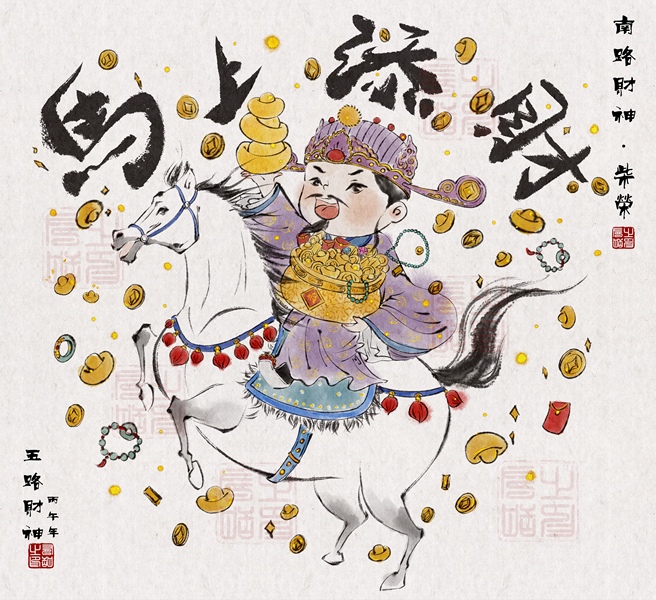 馬上添財
南路財神·柴榮
五路財神
丙午年